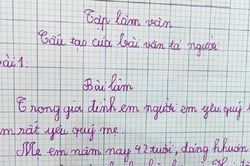 Tập làm văn
Cấu tạo của bài văn tả người
bài 1:
Bài làm
Trong gia đình em người em yêu quý
em rất yêu quý mẹ.
Mẹ em năm nay 42 tuổi, dáng